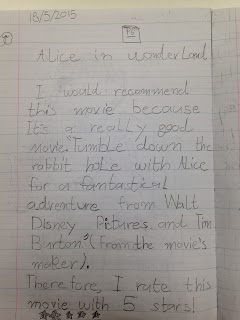 18/5/2015
Alice in wonderland
I would recommend
this movie because
It's a really good
movie."Tumble down the
rabbit hole with Alice
for a fantastical
adventure from Walt
Disney Pictures and Tim
Burton" (from the movie's
maker).
Therefore, I rate this
movie with 5 stars!